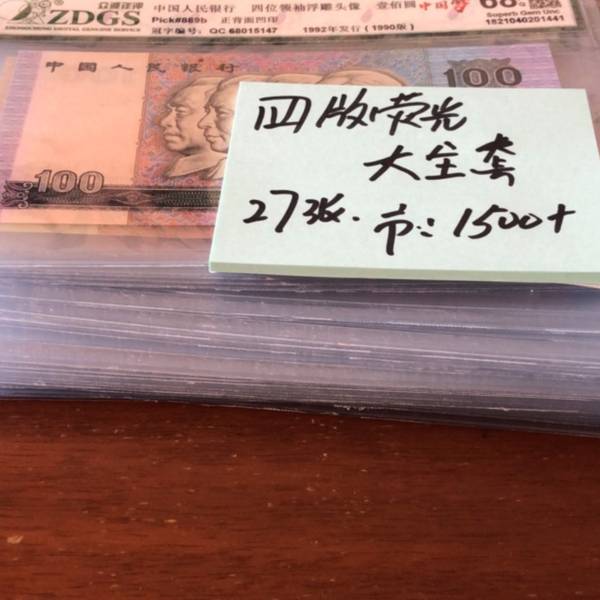 众诚评级
ZDGS
中国人民银行 四位领袖浮雕头像 壹佰圆 中国梦 68
Pick#889b 正背面凹印
Superb Gem Unc
冠字编号: QC 68015147 1992年发行 (1990版)
1821040201441
中国人民银行
100
100
四版荧光
大全套
27张. 市: 1500+